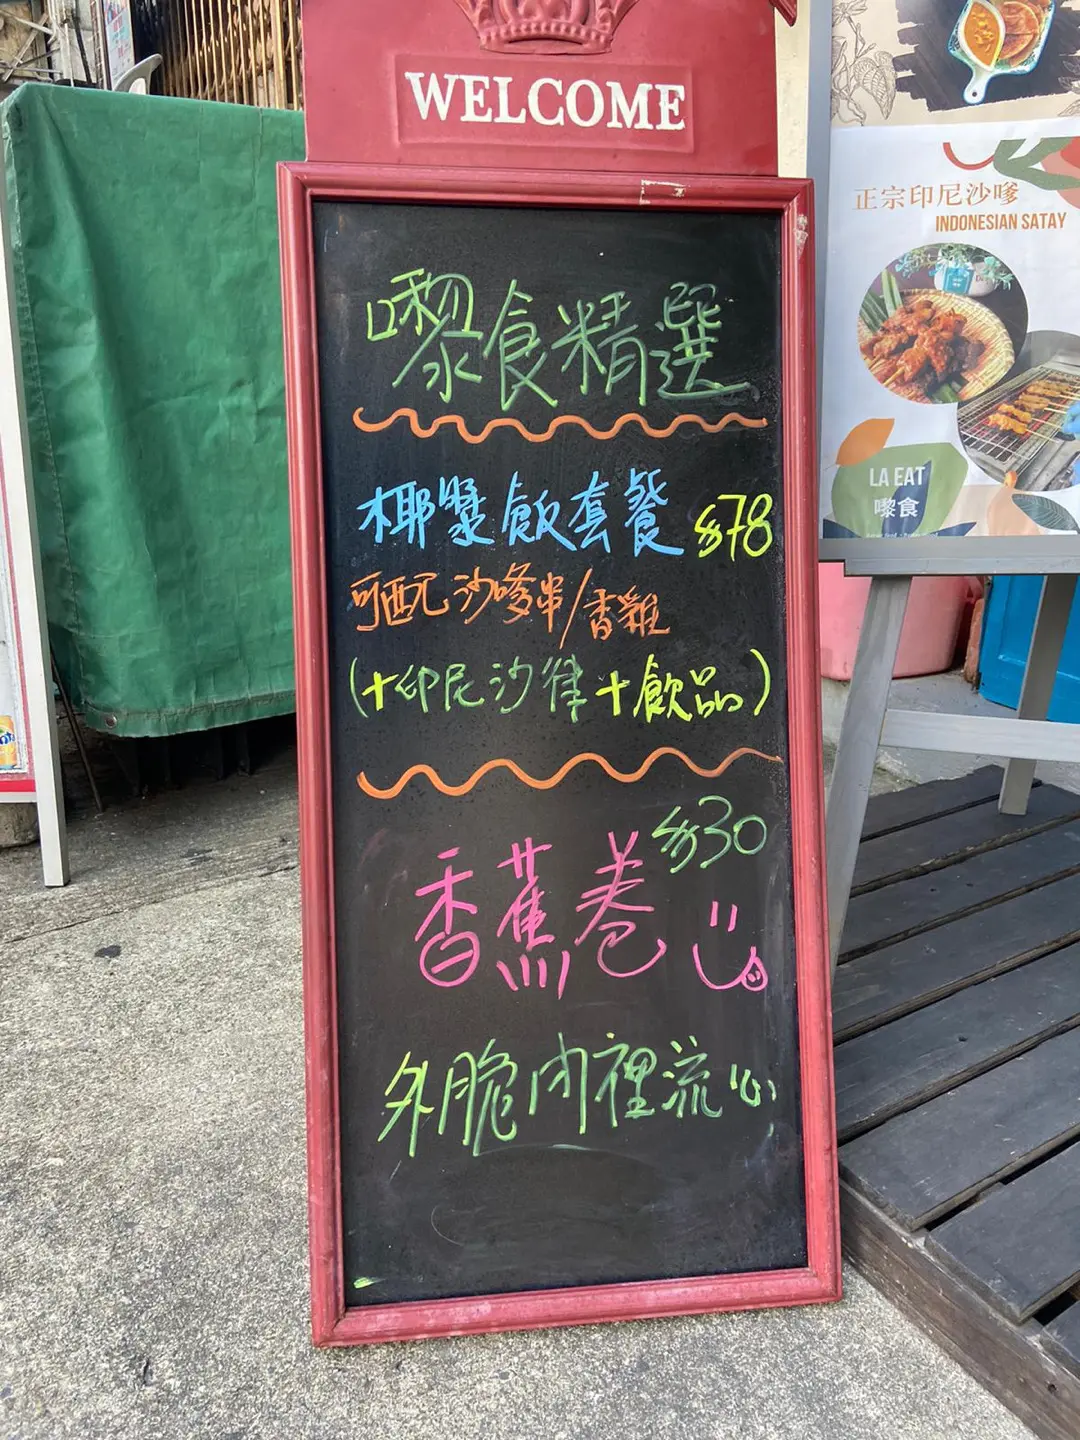 WELCOME
嚟食精選
椰漿飯套餐 $78
可配沙嗲串/香雞
(+印尼沙律+飲品)
$30
香蕉卷
外脆内裡流心
正宗印尼沙嗲
INDONESIAN SATAY
LA EAT
嚟食